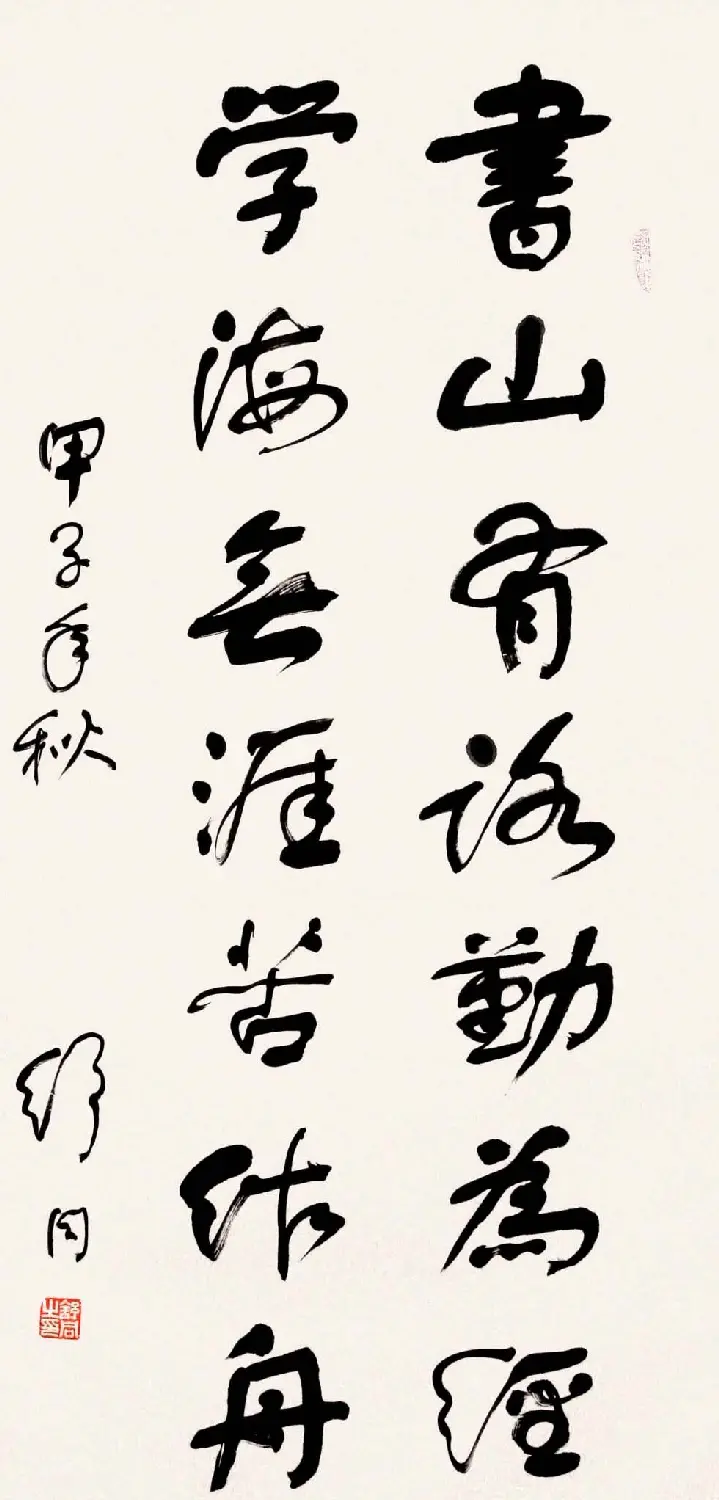 書山有路勤為徑
学海無涯苦作舟
甲子年秋
舒同
舒同之印